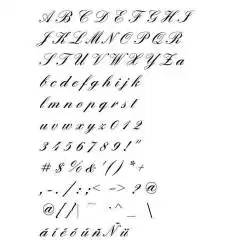 A B C D E F G H I
J K L M N O P Q R
S T U V W X Y Z a
b c d e f g h i j k
l m n o p q r s t
u v w x y z 0 1 2
3 4 5 6 7 8 9 ! "
# $ % & ' ( ) * +
, - . / : ; < = > ? @
@ [ / ] ^ ¨ · ^ _ \
á í é ó ú ñ Ñ ü